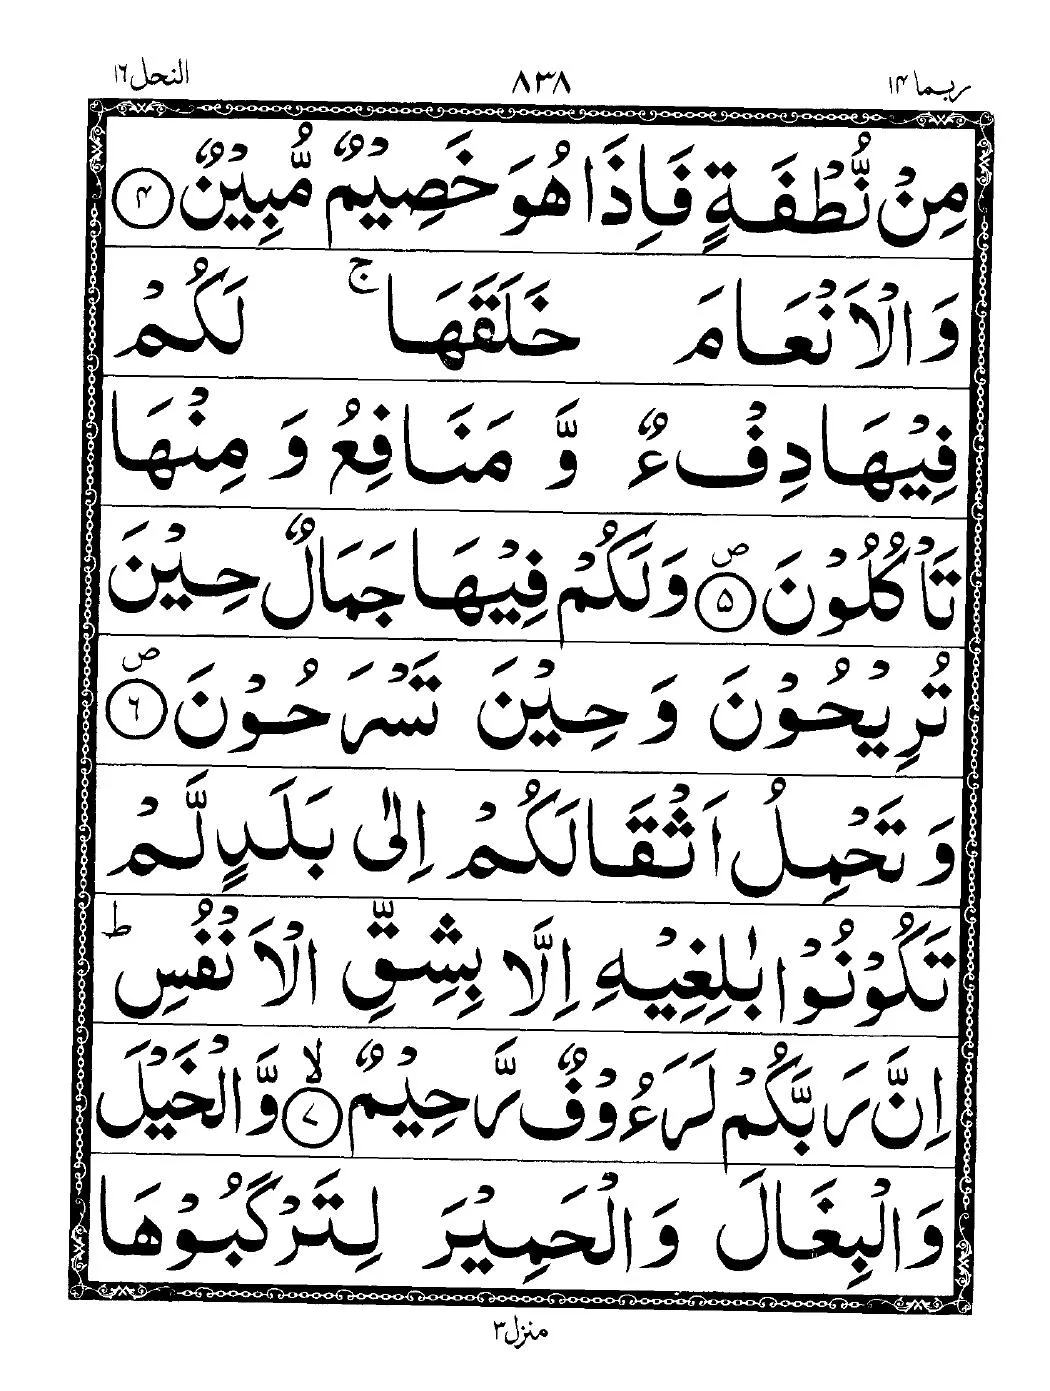 ربما ١٤ ٨٣٨ النحل ١٦
مِنْ نُّطْفَةٍ فَاِذَا هُوَ خَصِيْمٌ مُّبِيْنٌ ۝۴
وَالْاَنْعَامَ خَلَقَهَا ۚ لَكُمْ
فِيْهَا دِفْءٌ وَّ مَنَافِعُ وَ مِنْهَا
تَاْكُلُوْنَ ۝۵ ص وَلَكُمْ فِيْهَا جَمَالٌ حِيْنَ
تُرِيْحُوْنَ وَ حِيْنَ تَسْرَحُوْنَ ۝۶ ص
وَ تَحْمِلُ اَثْقَالَكُمْ اِلٰى بَلَدٍ لَّمْ
تَكُوْنُوْا بٰلِغِيْهِ اِلَّا بِشِقِّ الْاَنْفُسِ ؕ
اِنَّ رَبَّكُمْ لَرَءُوْفٌ رَّحِيْمٌ ۝۷ لا وَّالْخَيْلَ
وَالْبِغَالَ وَالْحَمِيْرَ لِتَرْكَبُوْهَا
منزل ٣